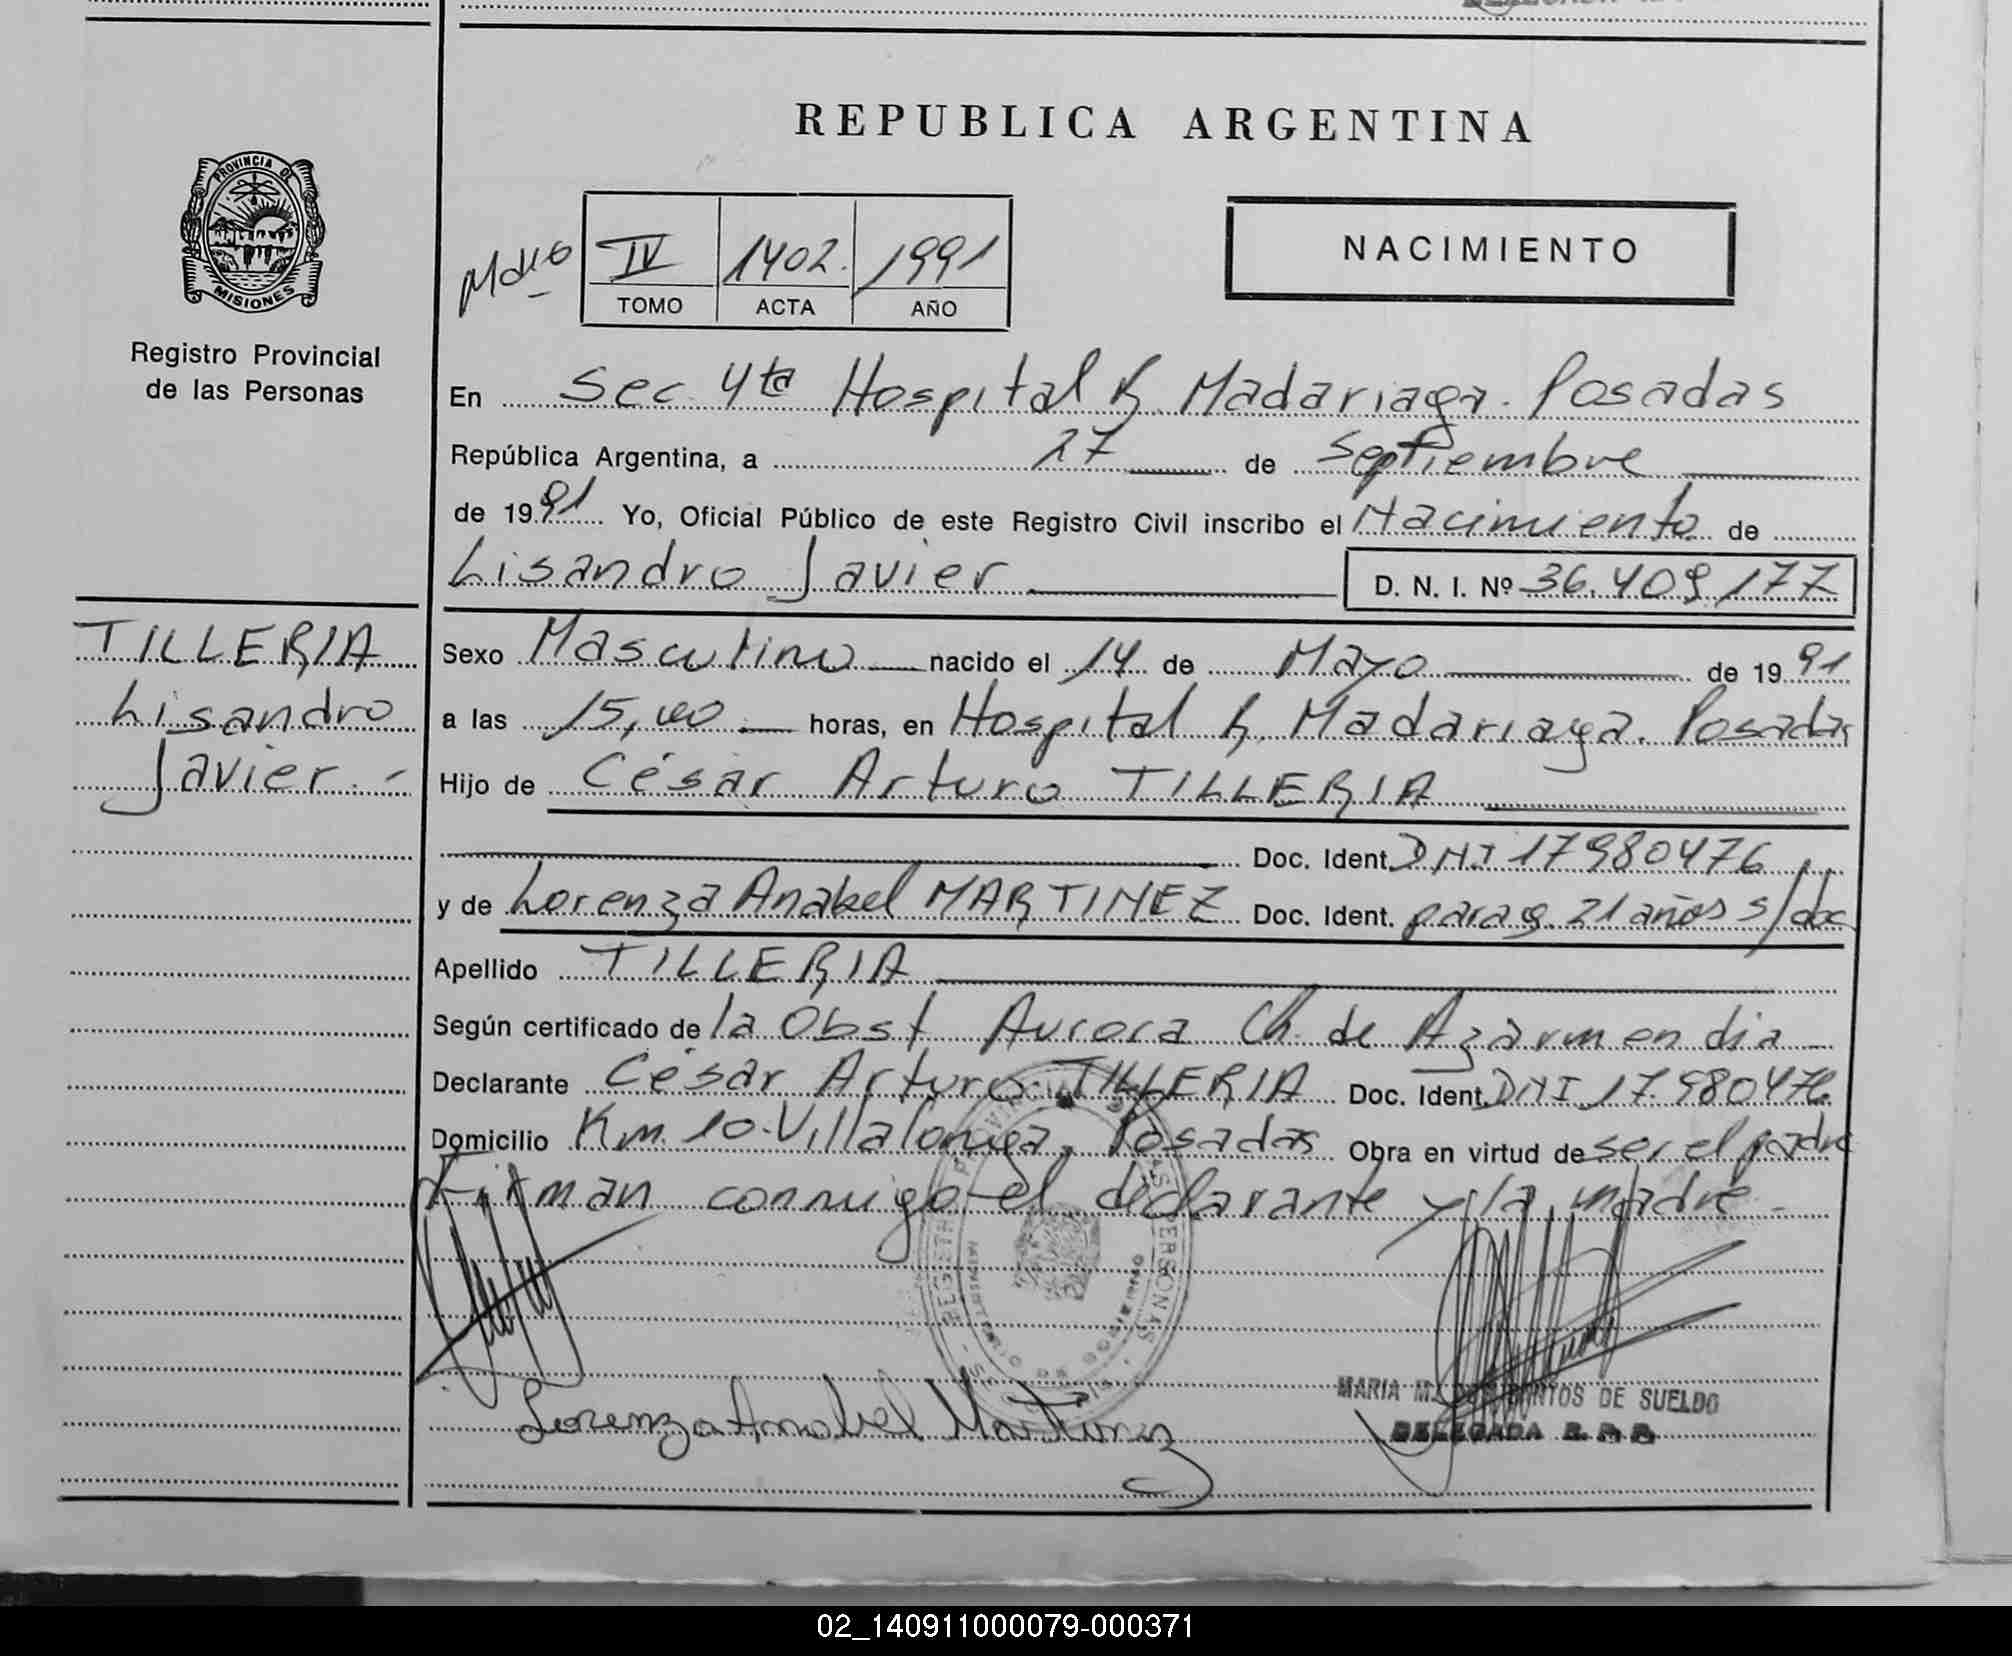 REPUBLICA ARGENTINA
PROVINCIA DE
MISIONES
Registro Provincial
de las Personas
IV 1402. 1991
TOMO ACTA AÑO
NACIMIENTO
En Sec. 4ta Hospital R. Madariaga. Posadas
República Argentina, a 27 de Septiembre
de 1991 Yo, Oficial Público de este Registro Civil inscribo el Nacimiento de
Lisandro Javier D. N. I. Nº 36.409177
TILLERIA
Lisandro
Javier.-
Sexo Masculino nacido el 14 de Mayo de 1991
a las 15,00 horas, en Hospital R. Madariaga. Posadas
Hijo de César Arturo TILLERIA
Doc. Ident. DNI 17980476
y de Lorenza Anabel MARTINEZ Doc. Ident. parag. 21 años s/doc
Apellido TILLERIA
Según certificado de la Obst Aurora Ch. de Azarmendia
Declarante César Arturo TILLERIA Doc. Ident. DNI 17.980476
Domicilio Km. 10. Villalonga, Posadas Obra en virtud de ser el padre
Firman conmigo el declarante y la madre.
Lorenza Anabel Martinez
MARIA M. SANTOS DE SUELDO
DELEGADA R.P.P.
02_140911000079-000371